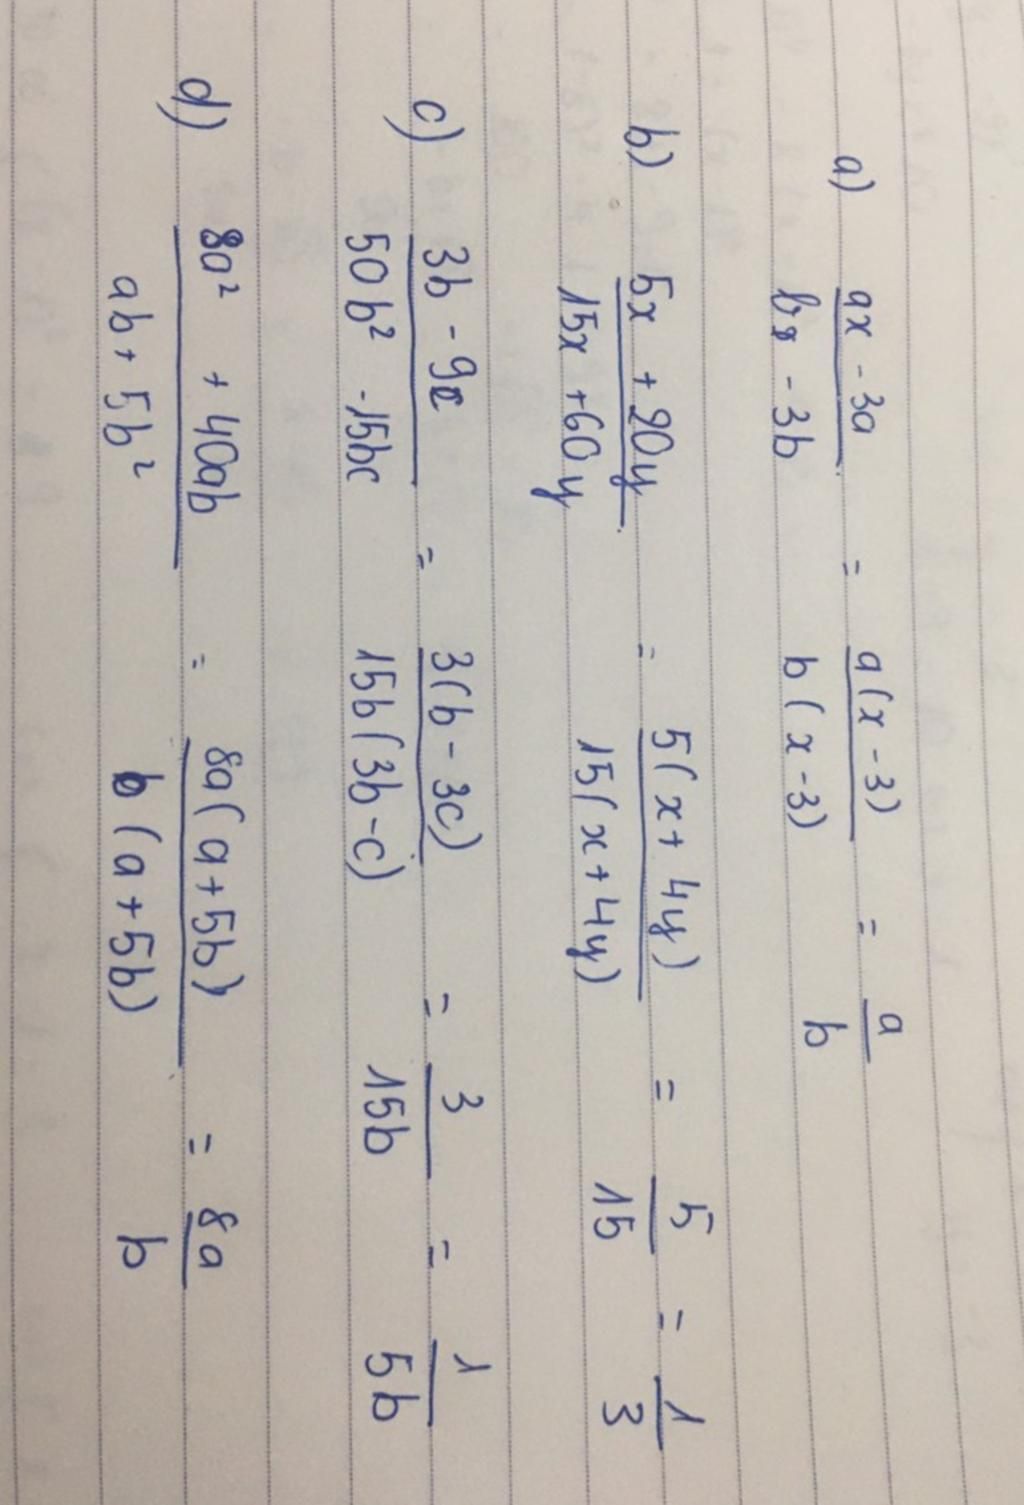 a) ax - 3a / bx - 3b = a(x - 3) / b(x - 3) = a / b
b) 5x + 20y / 15x + 60y = 5(x + 4y) / 15(x + 4y) = 5 / 15 = 1 / 3
c) 3b - 9c / 50b² - 15bc = 3(b - 3c) / 15b(3b - c) = 3 / 15b = 1 / 5b
d) 8a² + 40ab / ab + 5b² = 8a(a + 5b) / b(a + 5b) = 8a / b